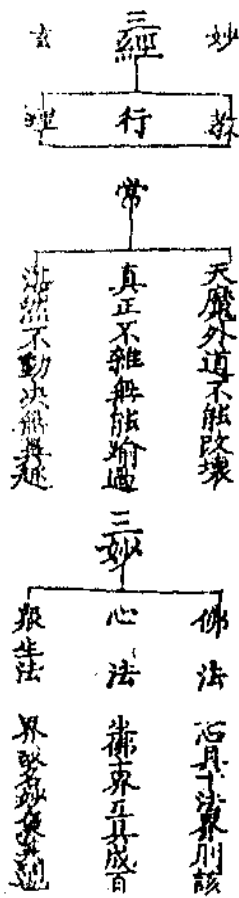 妙
三經
玄
教
行
理
常
天魔外道不能改壞
真正不雜無能踰過
湛然不動決無異
三妙
佛法
心法
眾生法
心具十法界則該
佛界互具成百
界